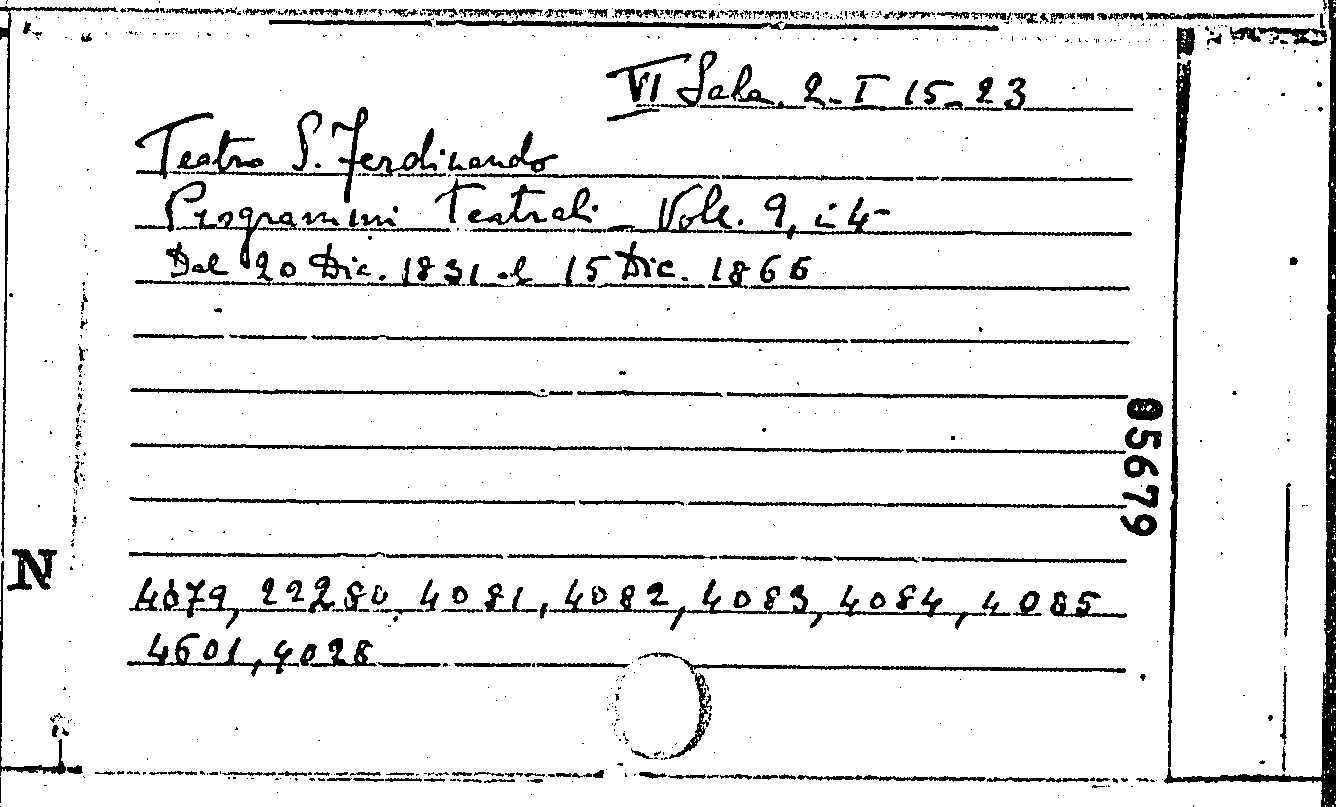 VI Sala. 2-I 15-23
Teatro S. Ferdinando
Programmi Teatrali - Voll. 9, i 4-
Dal 20 Dic. 1831 al 15 Dic. 1866
05679
N
4079, 22280, 4081, 4082, 4083, 4084, 4085
4601, 4028